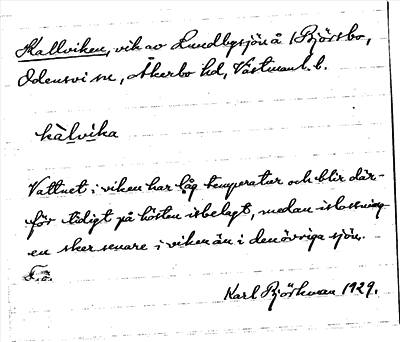 Kallviken, vik av Lundbysjön å 1 Björsbo,
Odensvi sn, Åkerbo hd, Västmanl. l.
kàlvika
Vattnet i viken har låg temperatur och blir där-
för tidigt på hösten isbelagt, medan islossning-
en sker senare i viken än i den övriga sjön.
Karl Björkman 1929.